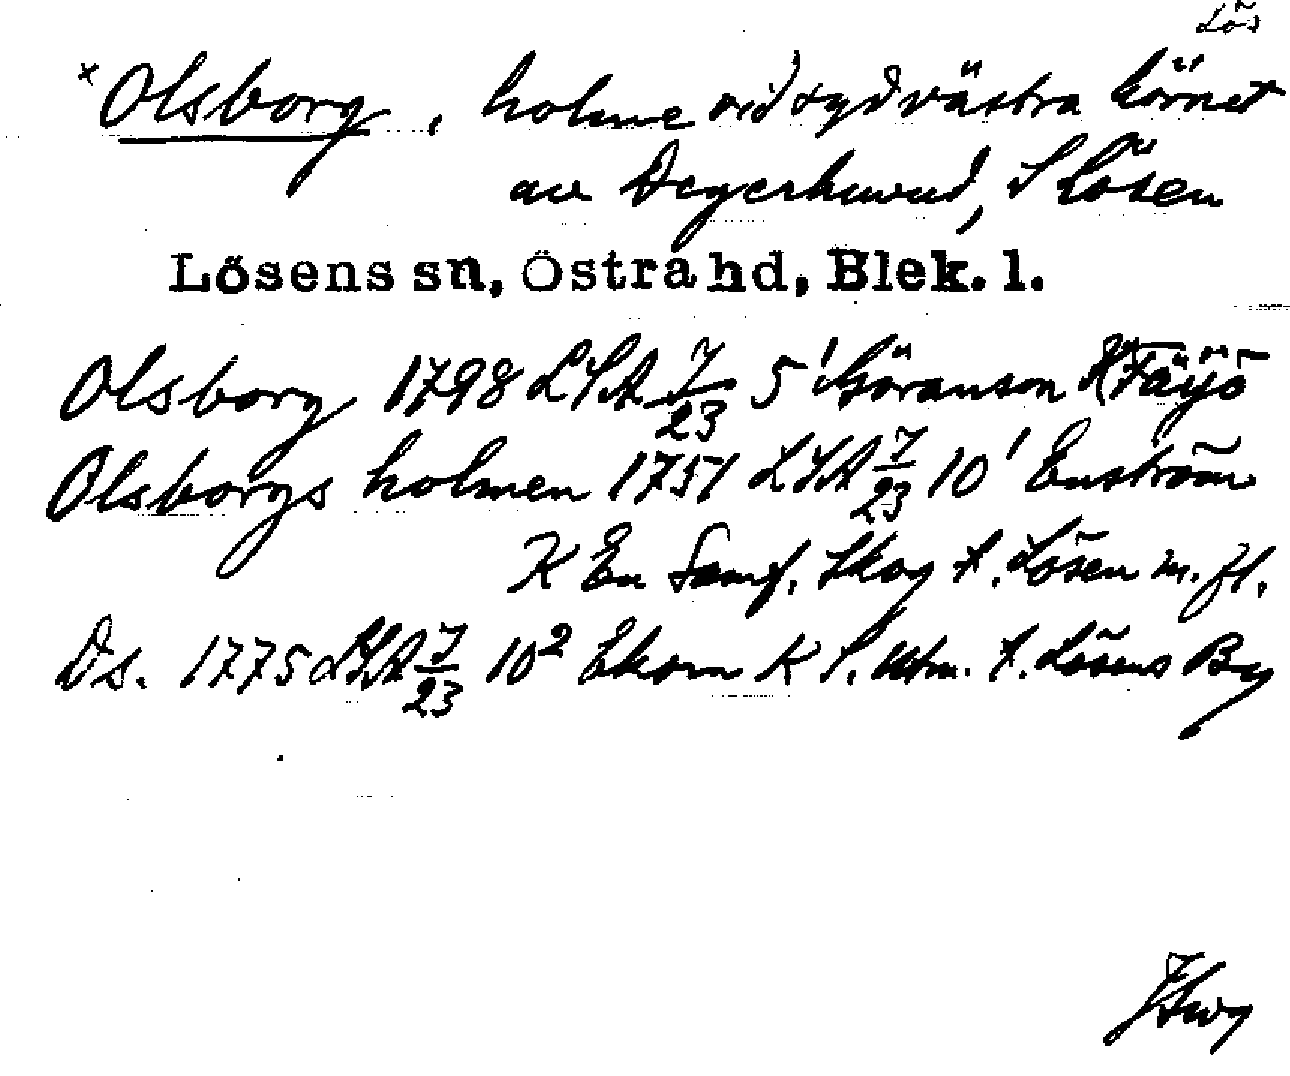 Lös
× Olsborg, holme vid sydvästra hörnet
av Degerhuvud, S Lösen
Lösens sn, Östra hd, Blek. l.
Olsborg 1798 LSA J/23 5¹ Göranson K Fäjö
Olsborgs holmen 1751 LSA J/23 10¹ Enström
K En Samf. Skog t. Lösen m. fl.
Ds. 1775 LSA J/23 10² Ekorn K S. Utm. t. Lösens By